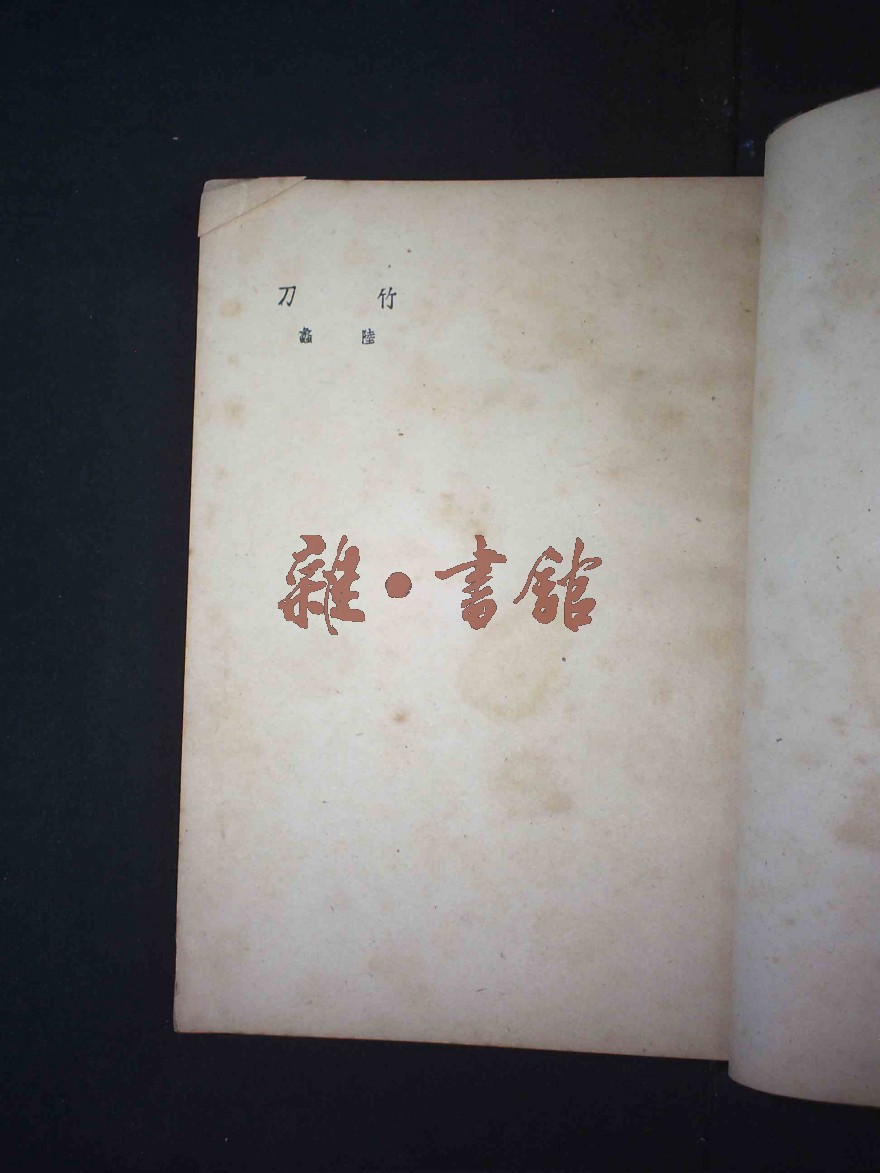 竹刀
陸蠡
雜·書館